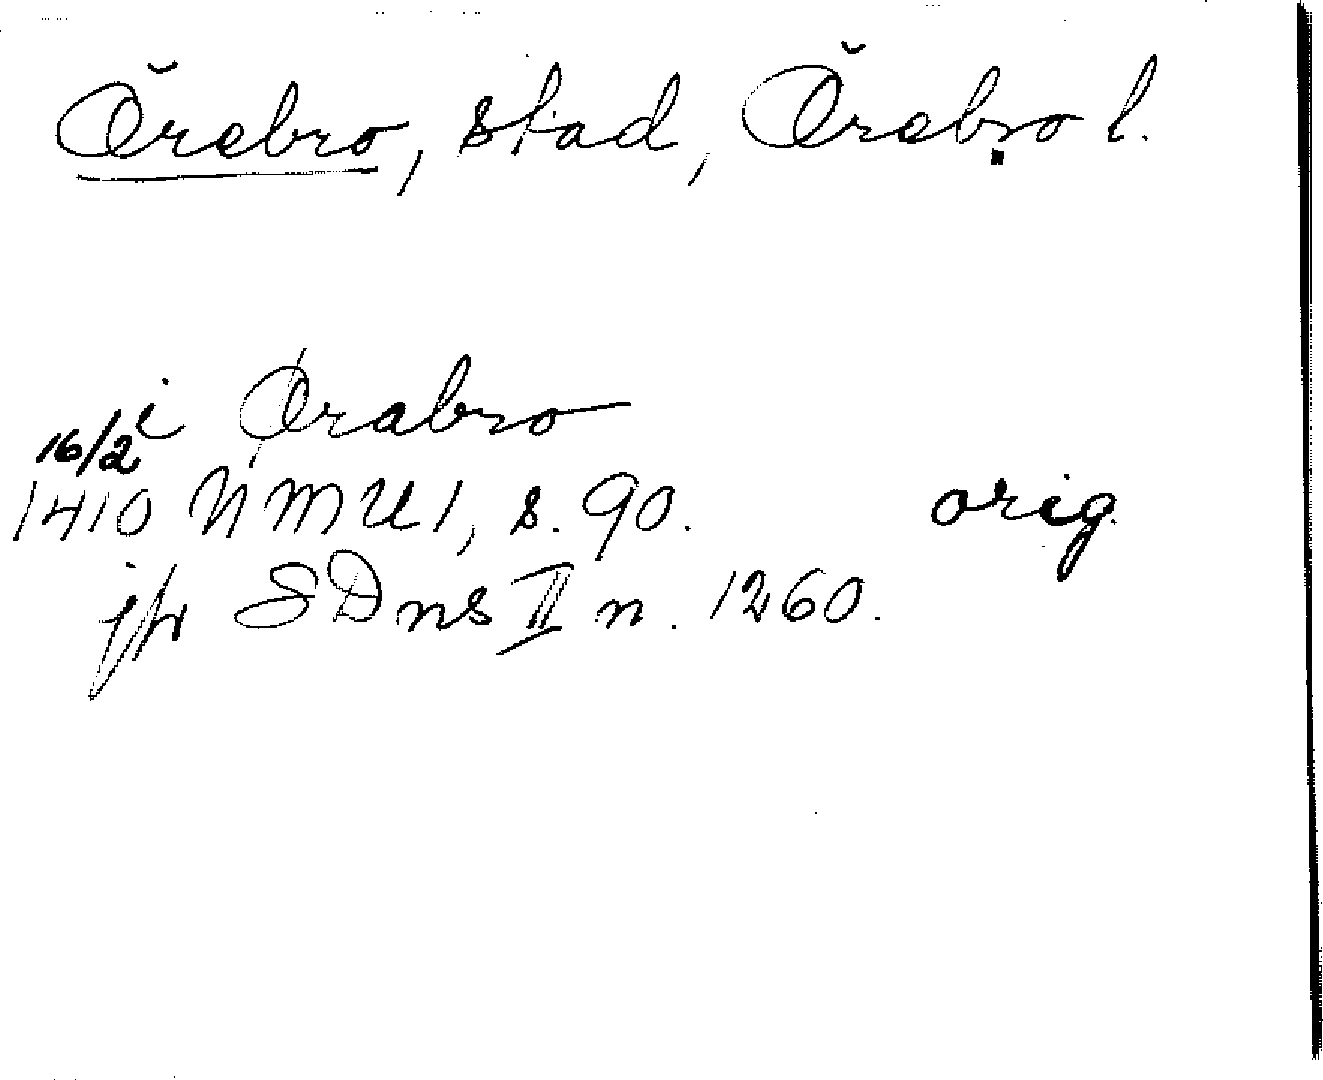 Örebro, stad, Örebro l.
i Ørabro
16/2
1410 NMU 1, s. 90. orig.
jfr SDns II n. 1260.